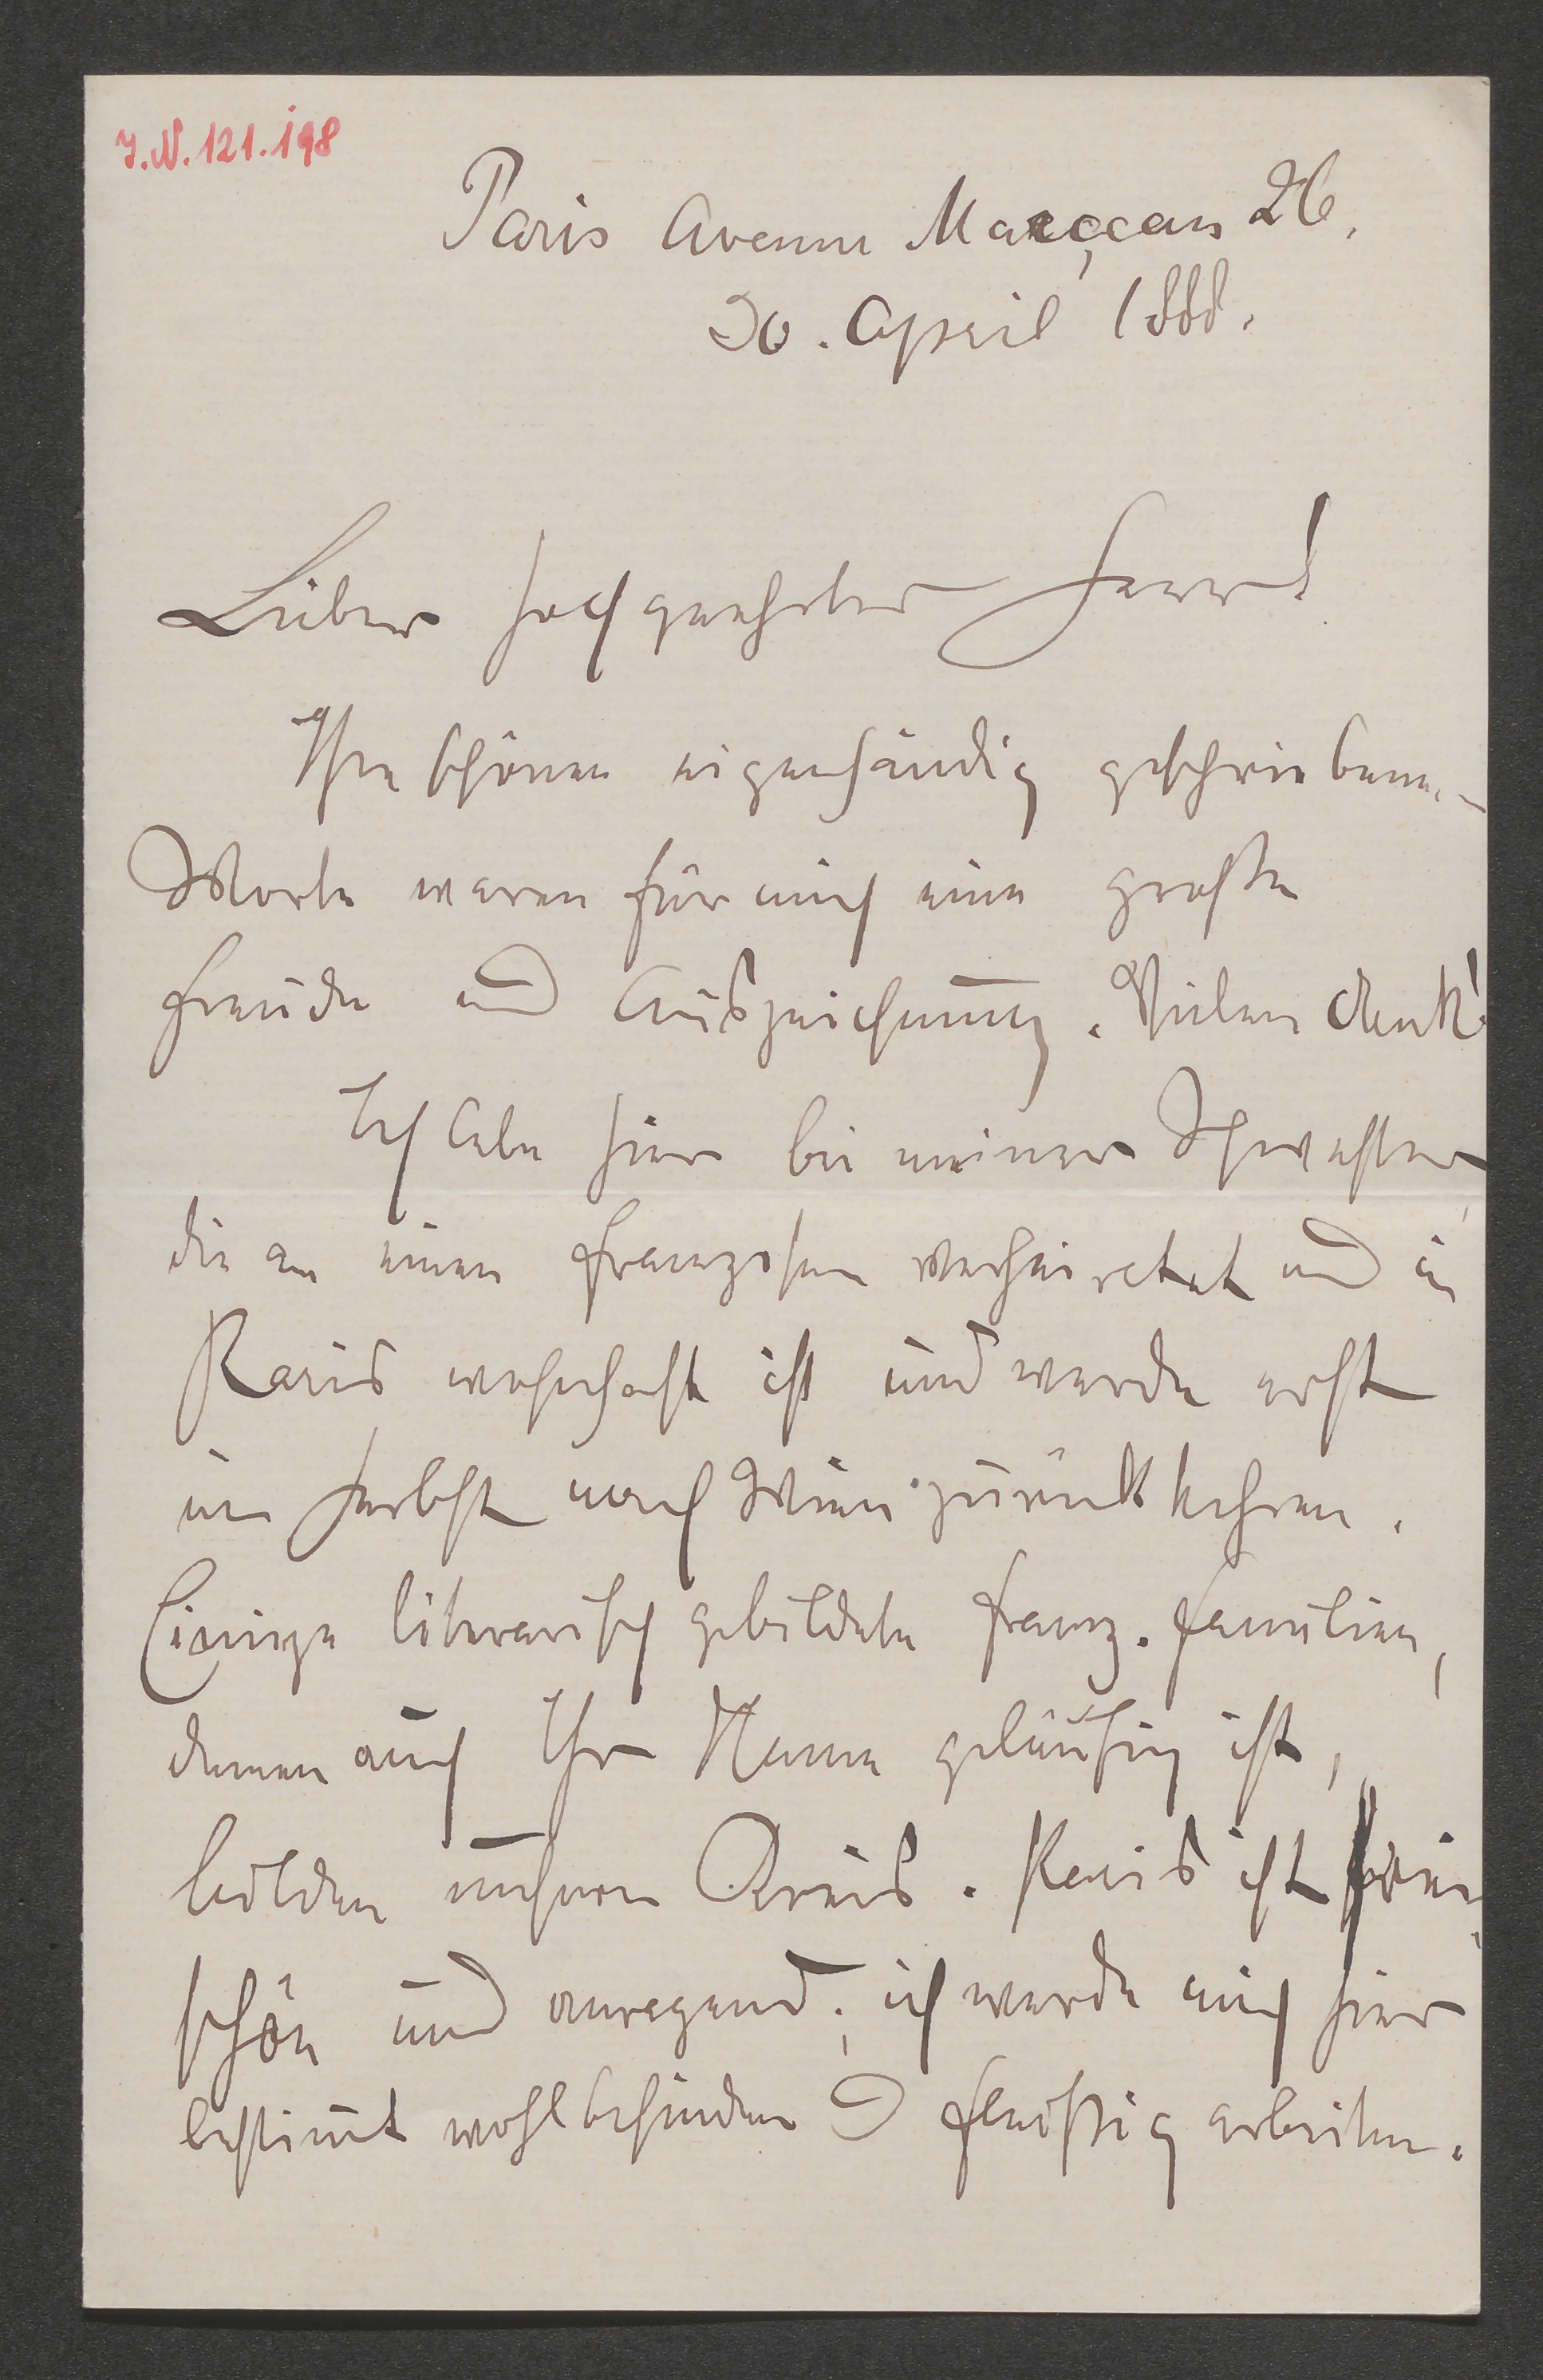 J.N. 121.198
Paris Avenue Marçeau 26,
30. April 1888.
Lieber hochgeehrter Herr!
Ihre schönen eigenhändig geschriebenen
Worte waren für mich eine große
Freude und Auszeichnung. Vielen Dank!
Ich lebe hier bei meiner Schwester,
die an einen Franzosen verheiratet und in
Paris wohnhaft ist und werde erst
im Herbst nach Wien zurückkehren.
Einige literarisch gebildete franz. Familien,
denen auch Ihr Name geläufig ist,
bilden unseren Kreis. Paris ist
schön und anregend; ich werde mich hier
bestimmt wohlbefinden u fleißig arbeiten.